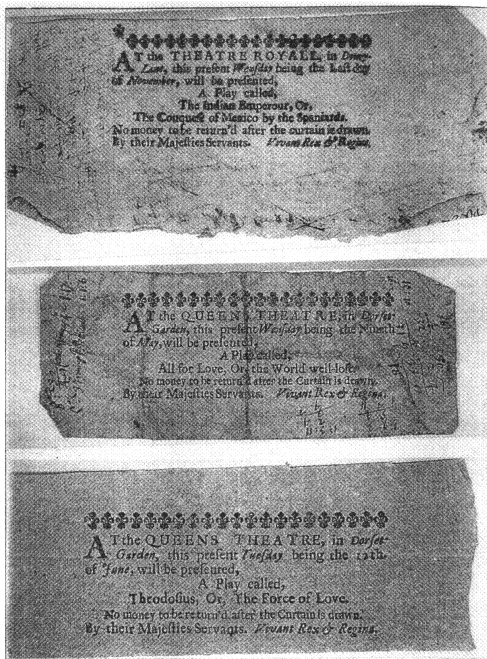 AT the THEATRE ROYALL, in Drury-
Lane, this present Wensday being the Last day
of November, will be presented,
A Play called,
The Indian Emperour, Or,
The Conquest of Mexico by the Spaniards.
No money to be return'd after the curtain is drawn.
By their Majesties Servants. Vivant Rex & Regina.
AT the QUEENS THEATRE, in Dorset-
Garden, this present Wensday being the Nineth
of May, will be presented,
A Play called,
All for Love, Or, the World well lost.
No money to be return'd after the Curtain is drawn.
By their Majesties Servants. Vivant Rex & Regina.
AT the QUEENS THEATRE, in Dorset-
Garden, this present Tuesday being the 12th.
of June, will be presented,
A Play called,
Theodosius, Or, The Force of Love.
No money to be return'd after the Curtain is drawn.
By their Majesties Servants. Vivant Rex & Regina.